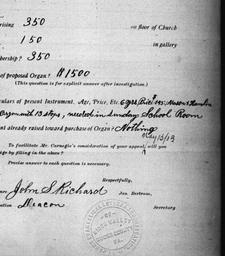 rising 350 on floor of Church
150 in gallery
bership? 350
of proposed Organ? $1500
(This question is for explicit answer after investigation.)
culars of present Instrument. Age, Price, Etc. 6 yrs, Price
Organ with 13 stops, needed in Sunday School Room
nt already raised toward purchase of Organ? Nothing
To facilitate Mr. Carnegie's consideration of your appeal, will you
ge by filling in the above?
Precise answer to each question is necessary.
Respectfully,
John S Richard Jas. Bertram,
tion Deacon Secretary